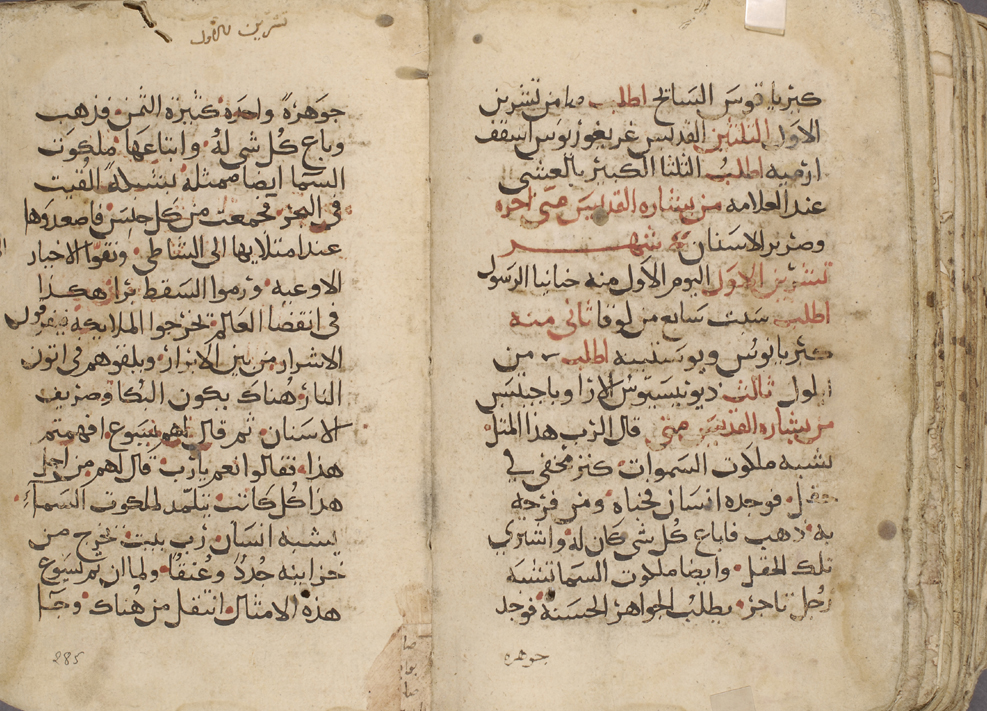 كبريانوس السايح اطلب من تشرين
الاول الثلثين القديس غريغوريوس اسقف
ارمنيه اطلب الثلثا الكبير بالعشى
عند العلامه من بشاره القديس متى اخره
وصرير الاسنان شهر
تشرين الاول اليوم الاول منه حنانيا الرسول
اطلب سبت سابع من لوقا ثاني منه
كبريانوس ويوستينيه اطلب من
ايلول ثالث ديونيسيوس
من بشاره القديس متى قال الرب هذا المثل
تشبه ملكوت السموات كنز مخفي في
حقل فوجده انسان فخباه ومن فرحه
به ذهب فاباع كل شى كان له واشترى
تلك الحقل وايضا ملكوت السما تشبه
رجل تاجر يطلب الجواهر الحسنة فوجد
جوهره
تشرين الاول
جوهرة واحده كثيرة الثمن فذهب
وباع كل شى له وابتاعها ملكوت
السما ايضا ممثلة بشبكة القيت
في البحر فجمعت من كل جنس فاصعدوها
عند امتلايها الى الشاطى ونقوا الاخيار
الاوعيه ورموا السقط برا هكذا
في انقضا العالم تخرجوا الملايكه يفرقون
الاشرار من بين الابرار ويلقوهم في اتون
النار هناك يكون البكا وصريف
الاسنان ثم قال لهم يسوع افهمتم
هذا فقالوا نعم يارب قال لهم من اجل
هذا كل كاتب يتلمد لملكوت السماء
يشبه انسان رب بيت يخرج من
خزاينه جددا وعتقا ولما ان تم يسوع
هذه الامثال انتقل من هناك وجا
285